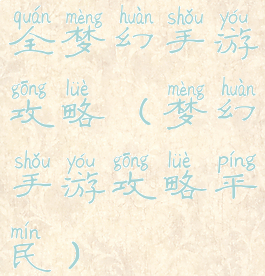 quán mèng huàn shǒu yóu
全梦幻手游
gōng lüè mèng huàn
攻略（梦幻
shǒu yóu gōng lüè píng
手游攻略平
mín
民）